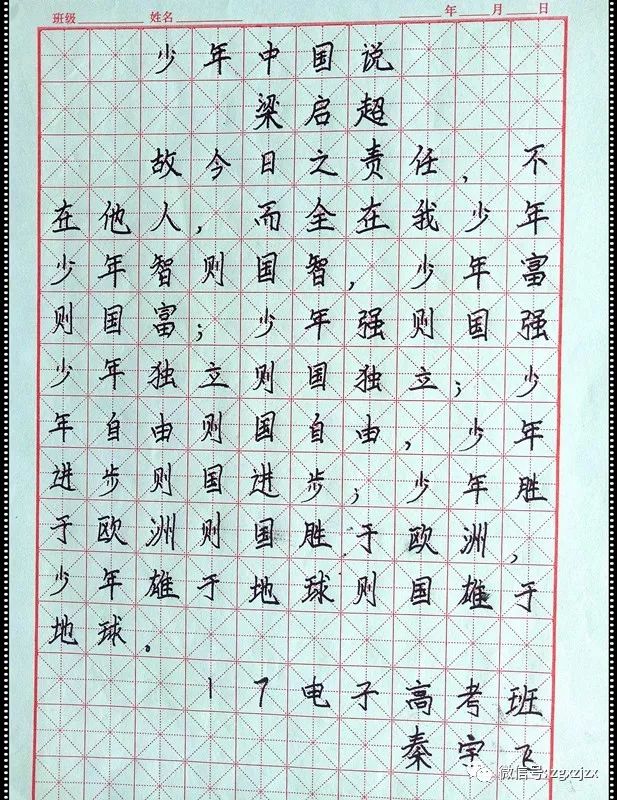 班级 姓名 年 月 日
少年中国说
梁启超
故今日之责任，不
在他人，而全在我少年
少年智则国智，少年富
则国富；少年强则国强
少年独立则国独立；少
年自由则国自由，少年
进步则国进步；少年胜
于欧洲则国胜于欧洲，
少年雄于地球则国雄于
地球。
17电子高考班
秦宇飞
微信号:zgxzjzx